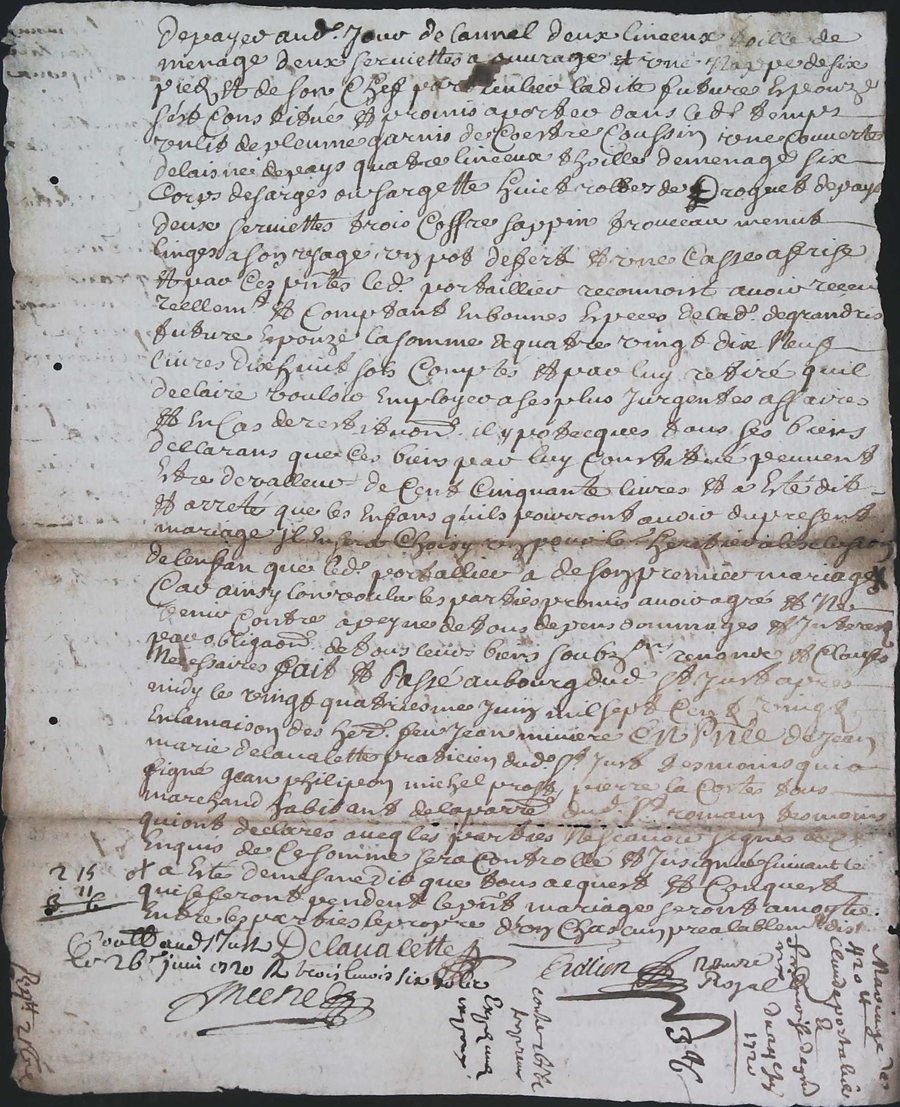 depayer aud.t Jour de Cannal deux linceux toille de
menage deux serviettes a ouvrage et une Nappe de six
pied, et de son Chef particulier ladite future Epouze
sest Constitué et promis aporter dans led.t temps
un lit de plume garni de Coestre Coussin une Couverte
de laisnee de pays quatre linceux thoille de menage six
Corps de sarges ou sargette huict robbes de Droguet de pays
deux serviettes trois Coffre sappin trousseau menut
linges a son usage, un pot de fert et une Casse a frise
et par Ces pntes led. portaillier reconnoit avoir receu
reellem.t et Comptant En bonnes Especes de lad. degrandris
future Epouze la somme de quatre vingt dix Neuf
livres dix huit sols Comptés et par luy retiré quil
declaire vouloir Employer a ses plus Jurgentes affaires
et En Cas de restitution, il ypotecques tous ses biens
declarans que les biens par luy Constitue peuvent
Estre de valleur de Cent Cinquante livres et a Esté dit
et arreté que les Enfans quils pourront avoir du present
mariage jl En sera Choisy un pour le. heritier a lesclusion
de lenfan que led. portallier a de son premier mariage
Car ainsy lon voulu les parties promis avoir agré et Ne
venir Contre a peyne de tous depens dommages et Interes
par obligaon. de tous leurs biens soubz renonce et Clauses
Necessaires fait et Passé au bourg dud. St. Just apres
midy le vingt quatriesme Juin mil sept Cent vingt
En la maison des Her. feu Jean miniere En Pnce de Jean
marie delavalette praticien dud. St. Just tesmoins qui a
signé Jean philipon michel prost, pierre la Coste tous
marchand habitant de la parre. dud. St. romain tesmoins
qui ont declares avecq les parties Ne scavoir signer de Ce
Enquis de Ce somme sera Controlle et Insignue suivant lei
et a Esté demesme dit que tous acquest et Conquest
qui se feront pendent le pnt mariage seront a moytie
Entre les parties le propre d'un Chascun prealablem.t dist
2 15
11
3 6
Delavalette
le 26e juin 1720 R trois livres six sols
Notaire
Royal
Mariage des
de
Claude portallier
1720